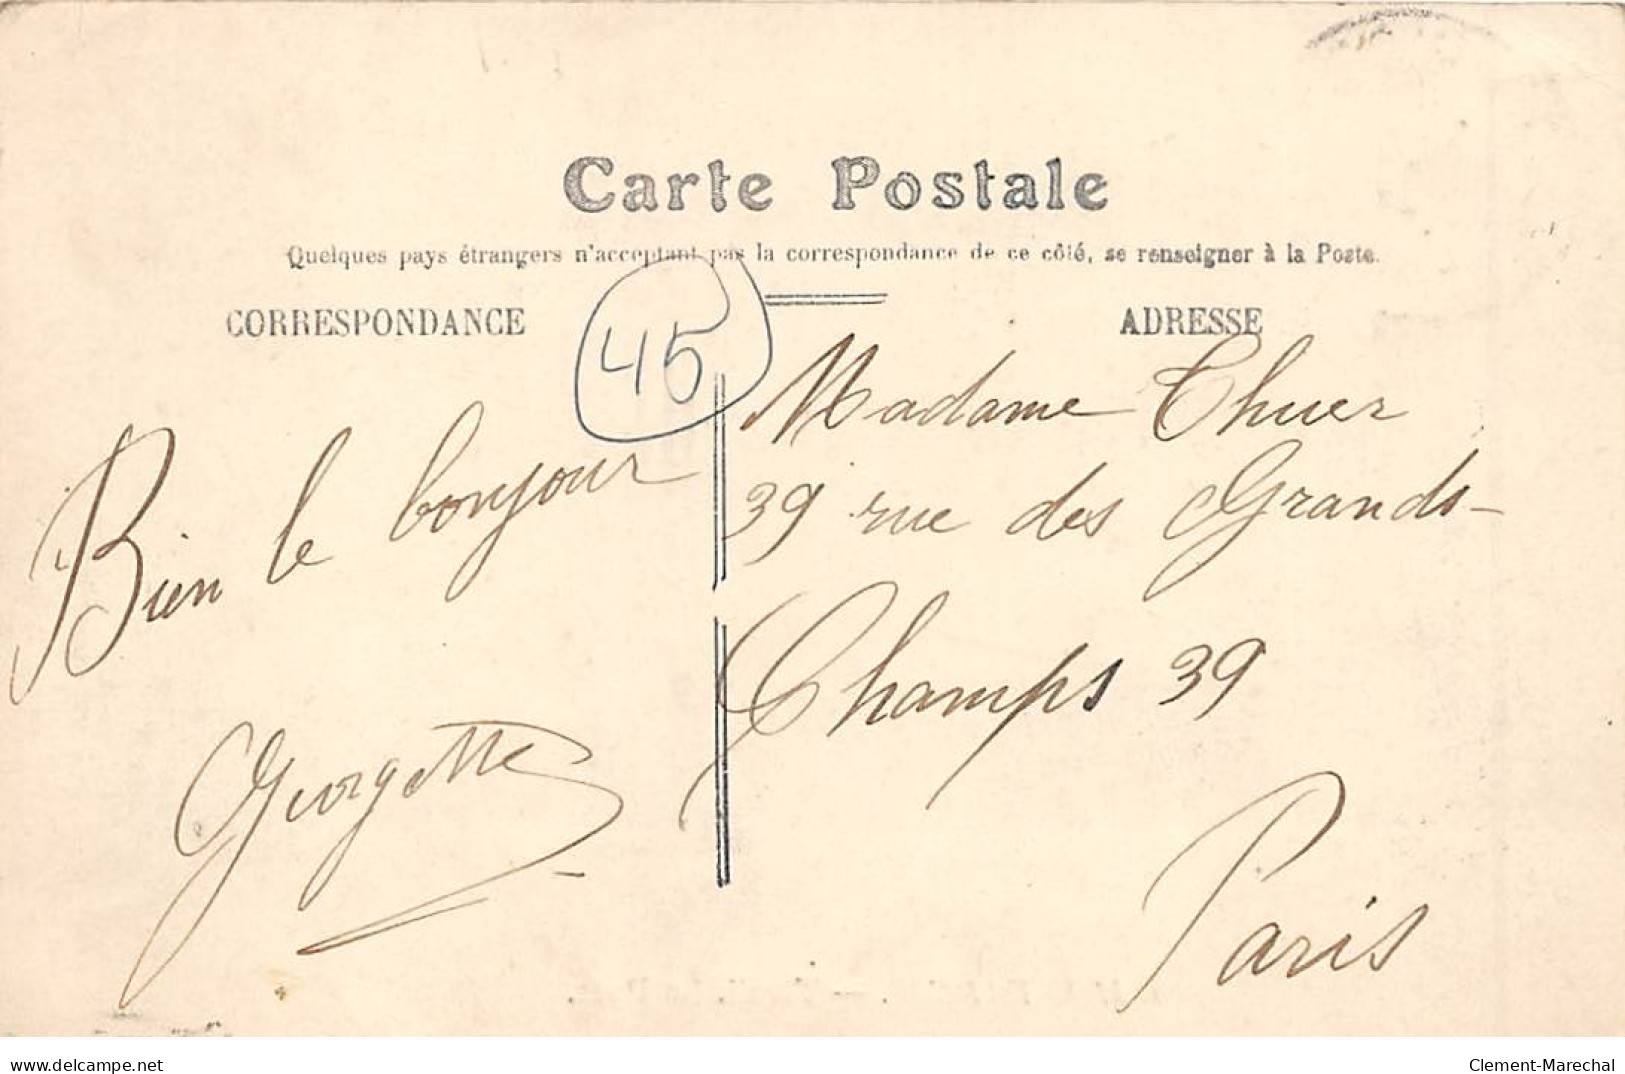 Carte Postale
Quelques pays étrangers n'acceptant pas la correspondance de ce côté, se renseigner à la Poste.
CORRESPONDANCE
45
Bien le bonjour
Georgette
ADRESSE
Madame Thuer
39 rue des Grands-
Champs 39
Paris
www.delcampe.net
Clement-Marechal